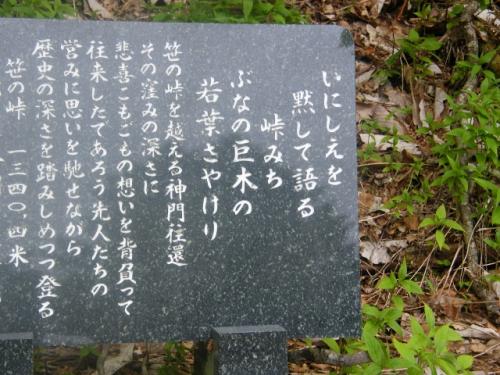 いにしえを
黙して語る
峠みち
ぶなの巨木の
若葉さやけり
笹の峠を越える神門往還
その窪みの深さに
悲喜こもごもの想いを背負って
往来したであろう先人たちの
営みに思いを馳せながら
歴史の深さを踏みしめつつ登る
笹の峠 一三四〇.四米